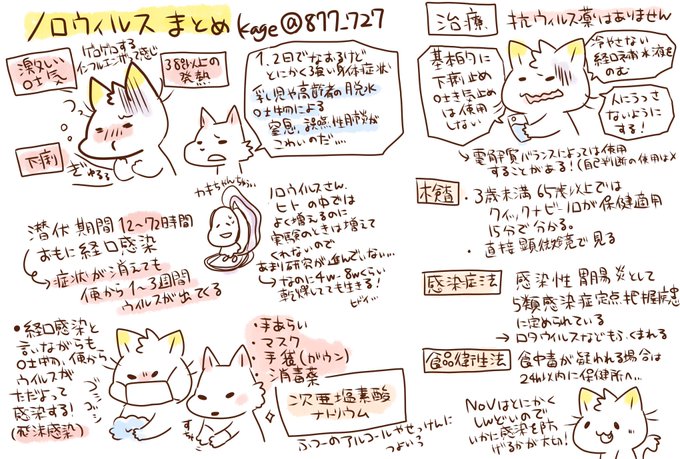 ノロウィルス まとめ kage@877_727
激しい
吐き気
ゲロゲロする
インフルエンザって感じ
38℃以上の
発熱
下痢
ぎゅるる
1、2日でなおるけど
とにかく強い身体症状
乳児や高齢者の脱水
吐物による
窒息、誤嚥性肺炎が
こわいのだ…
潜伏期間12〜72時間
おもに経口感染
症状が消えても
便から1〜3週間
ウイルスが出てくる
カキちゃんちぃ
ノロウイルスさん、
ヒトの中では
よく増えるのに
実験のときは増えて
くれないので
あまり研究が進んでいない…
なのに4w-8wくらい
乾燥しても生きる!
・経口感染と
言いながらも
吐物、便から
ウイルスが
ただよって
感染する!
・手あらい
・マスク
・手袋(ガウン)
・消毒薬
次亜塩素酸
ナトリウム
ふつーのアルコールやせっけんに
つよいう
治療
抗ウィルス薬はありません
基本的に
下痢止め
吐き気止め
は使用
しない
冷やさない
経口補水液を
のむ
人にうつさ
ないように
する!
電解質バランスによっては使用
することがある!(自己判断の使用は×
検査
・3歳未満 65歳以上では
クイックナビノロが保険適用
15分で分かる。
・直接顕微鏡で見る
感染症法
感染性胃腸炎として
5類感染症定点把握疾患
に定められている
→ロタウイルスなどもふくまれる
食品衛生法
食中毒が疑われる場合は
24h以内に保健所へ…
NoVはとにかく
しんどいので
いかに感染を防
げるかが大切!